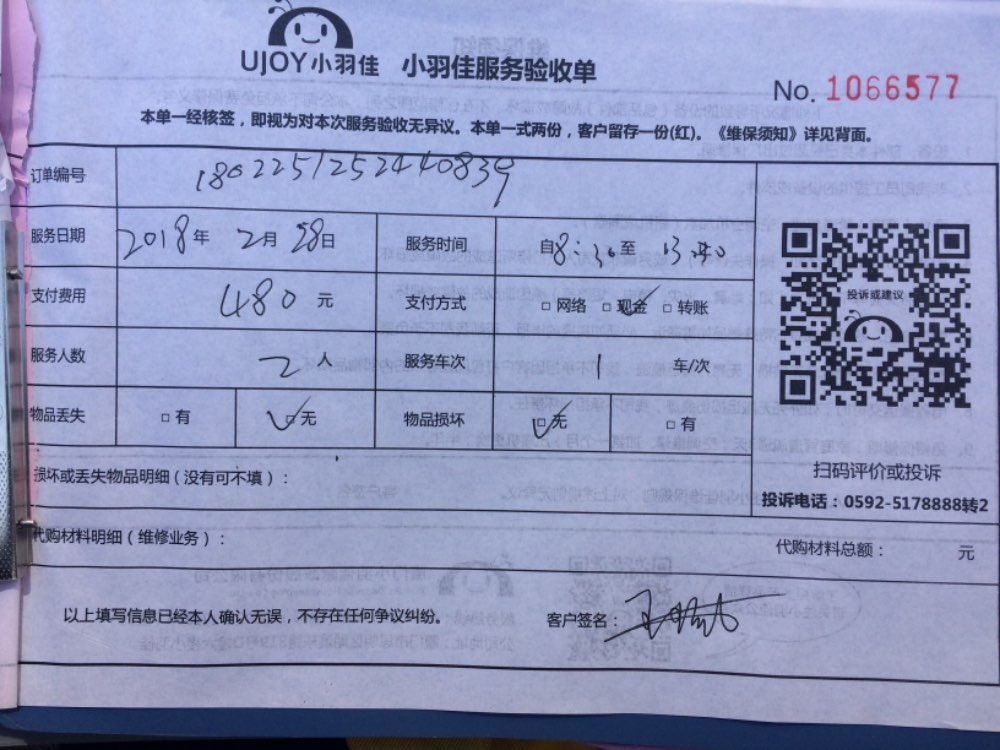 UJOY小羽佳 小羽佳服务验收单
No. 1066577
本单一经核签，即视为对本次服务验收无异议。本单一式两份，客户留存一份(红)。《维保须知》详见背面。
订单编号 180225125244 0839
服务日期 2018年 2月 28日 服务时间 自8:30至
支付费用 480 元 支付方式 □ 网络 □ 现金 □ 转账
投诉或建议
服务人数 2 人 服务车次 1 车/次
物品丢失 □ 有 □ 无 物品损坏 □ 无 □ 有
损坏或丢失物品明细（没有可不填）：
扫码评价或投诉
投诉电话：0592-5178888转2
代购材料明细（维修业务）：
代购材料总额： 元
以上填写信息已经本人确认无误，不存在任何争议纠纷。 客户签名：